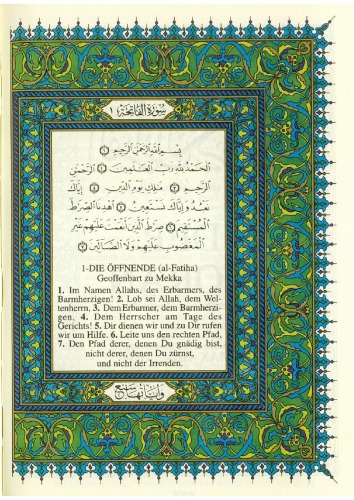 سورة الفاتحة ١
بسم الله الرحمن الرحيم ۝١
الحمد لله رب العالمين ۝٢ الرحمن
الرحيم ۝٣ مالك يوم الدين ۝٤ إياك
نعبد وإياك نستعين ۝٥ اهدنا الصراط
المستقيم ۝٦ صراط الذين أنعمت عليهم غير
المغضوب عليهم ولا الضالين ۝٧
1-DIE ÖFFNENDE (al-Fatiha)
Geoffenbart zu Mekka
1. Im Namen Allahs, des Erbarmers, des
Barmherzigen! 2. Lob sei Allah, dem Wel-
tenherrn, 3. Dem Erbarmer, dem Barmherzi-
gen. 4. Dem Herrscher am Tage des
Gerichts! 5. Dir dienen wir und zu Dir rufen
wir um Hilfe. 6. Leite uns den rechten Pfad,
7. Den Pfad derer, denen Du gnädig bist,
nicht derer, denen Du zürnst,
und nicht der Irrenden.
وآياتها سبع